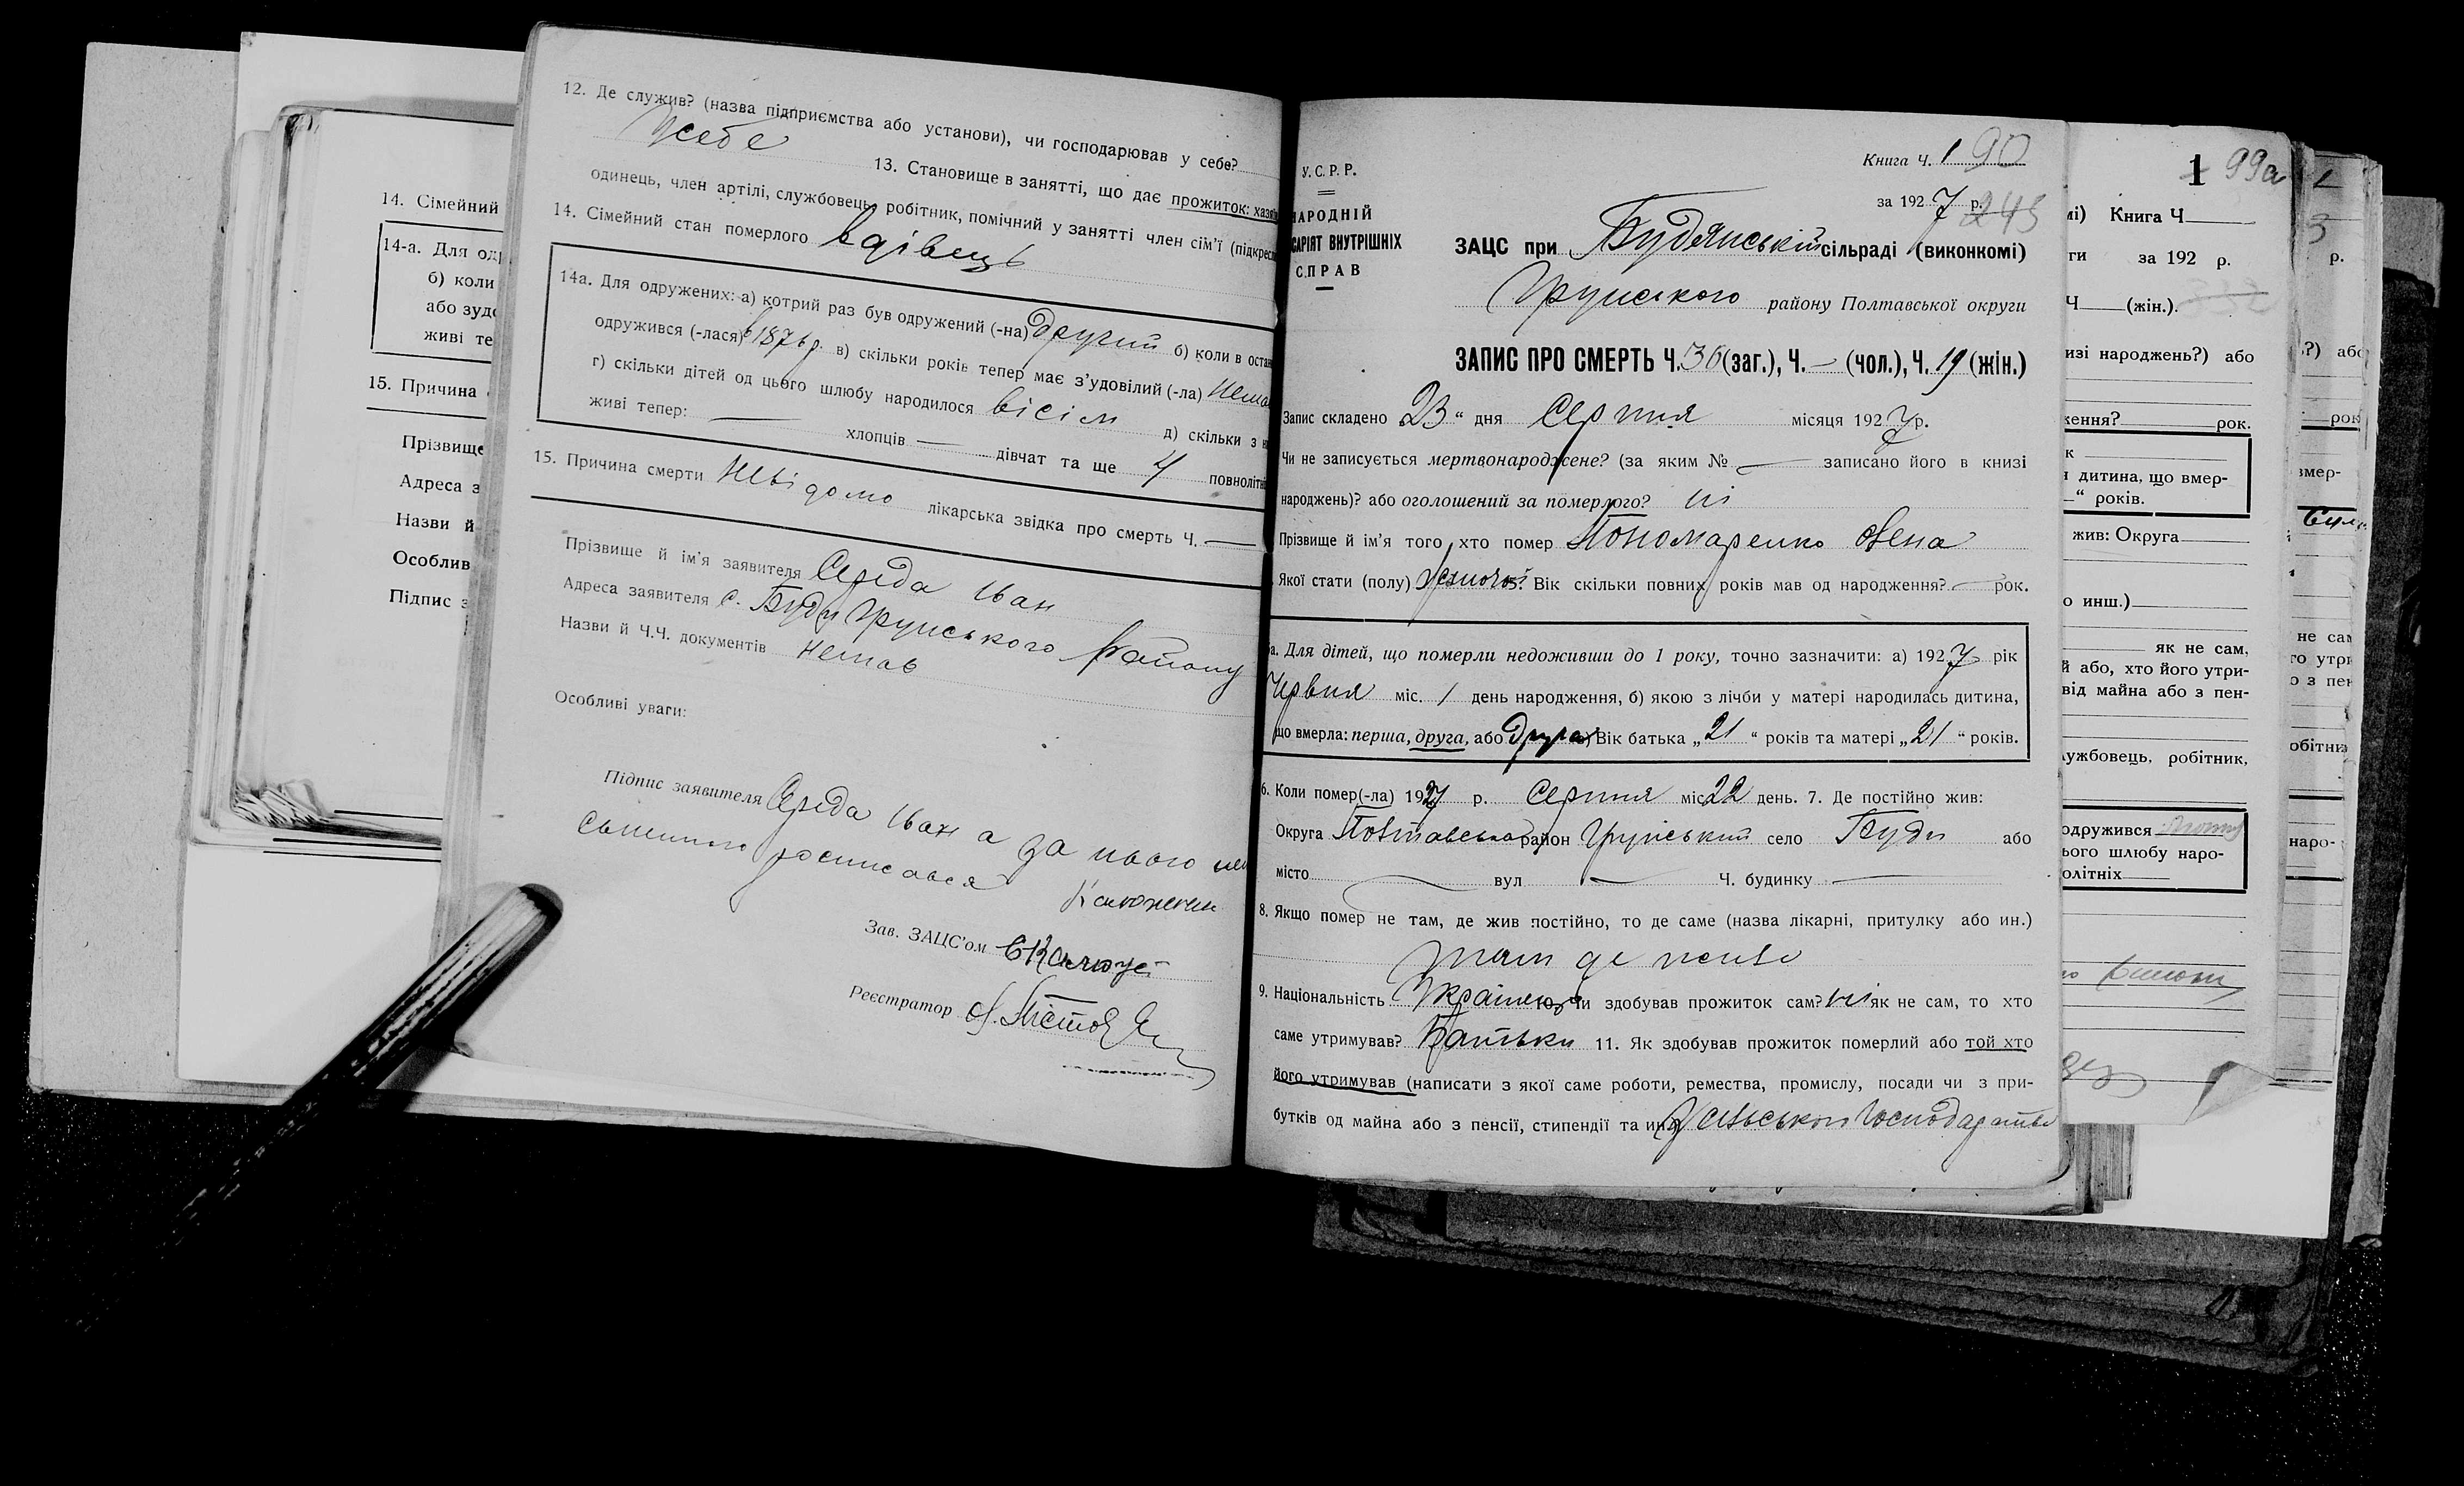 14. Сімейний
14-а. Для од
б) коли
або зудо
живі те
15. Причина
Прізвище
Адреса з
Назви й
Особлив
Підпис з
12. Де служив? (назва підприємства або установи), чи господарював у себе?
У себе
13. Становище в занятті, що дає прожиток: хазяїн
одинець, член артілі, службовець, робітник, помічний у занятті член сім’ї (підкресл
14. Сімейний стан померлого вдівець
14а. Для одружених: а) котрий раз був одружений (-на) Другий б) коли в остан
одружився (-лася) в 1876 р. в) скільки років тепер має з’удовілий (-ла) Нема
г) скільки дітей од цього шлюбу народилося вісім д) скільки з н
живі тепер: — хлопців — дівчат та ще 4 повнолітні
15. Причина смерти Невідомо лікарська звідка про смерть Ч. —
Прізвище й ім’я заявителя Середа Іван
Адреса заявителя с. Буди Грунського Району
Назви й Ч.Ч. документів немає
Особливі уваги:
Підпис заявителя Середа Іван а за нього не
сьменного росписався
Зав. ЗАЦС’ом
Реєстратор
У.С.Р.Р.
НАРОДНІЙ
САРІЯТ ВНУТРІШНІХ
СПРАВ
Книга Ч. 1 90
за 1927 р. 245
ЗАЦС при Будянській сільраді (виконкомі)
Грунського району Полтавської округи
ЗАПИС ПРО СМЕРТЬ Ч. 36 (заг.), Ч. — (чол.), Ч. 19 (жін.)
Запис складено 23 “ дня Серпня місяця 1927 р.
Чи не записується мертвонароджене? (за яким № — записано його в книзі
народжень)? або оголошений за померлого? ні
Прізвище й ім’я того, хто помер Пономаренко Олена
Якої стати (полу) Жіночої 5. Вік скільки повних років мав од народження? — рок.
5а. Для дітей, що померли недоживши до 1 року, точно зазначити: а) 1927 рік
Червня міс. 1 день народження, б) якою з лічби у матері народилась дитина,
що вмерла: перша, друга, або Друга в) Вік батька „21“ років та матері „21“ років.
6. Коли помер(-ла) 1927 р. Серпня міс. 22 день. 7. Де постійно жив:
Округа Полтавська район Грунський село Буди або
місто — вул — Ч. будинку —
8. Якщо помер не там, де жив постійно, то де саме (назва лікарні, притулку або ин.)
там де жила
9. Національність Українець чи здобував прожиток сам? ні як не сам, то хто
саме утримував? Батьки 11. Як здобував прожиток померлий або той хто
його утримував (написати з якої саме роботи, ремества, промислу, посади чи з при-
бутків од майна або з пенсії, стипендії та ин.) З сільського господарства
1 99а
мі) Книга Ч
ги за 192 р.
Ч (жін.).
изі народжень?) або
ження? рок.
к
я дитина, що вмер-
“ років.
жив: Округа
о инш.)
як не сам,
й або, хто його утри-
від майна або з пен-
ужбовець, робітник,
одружився
ього шлюбу наро-
олітніх
р.
?) або
рок
вмер-
не сам
го утри
о з пен
обітни
наро-